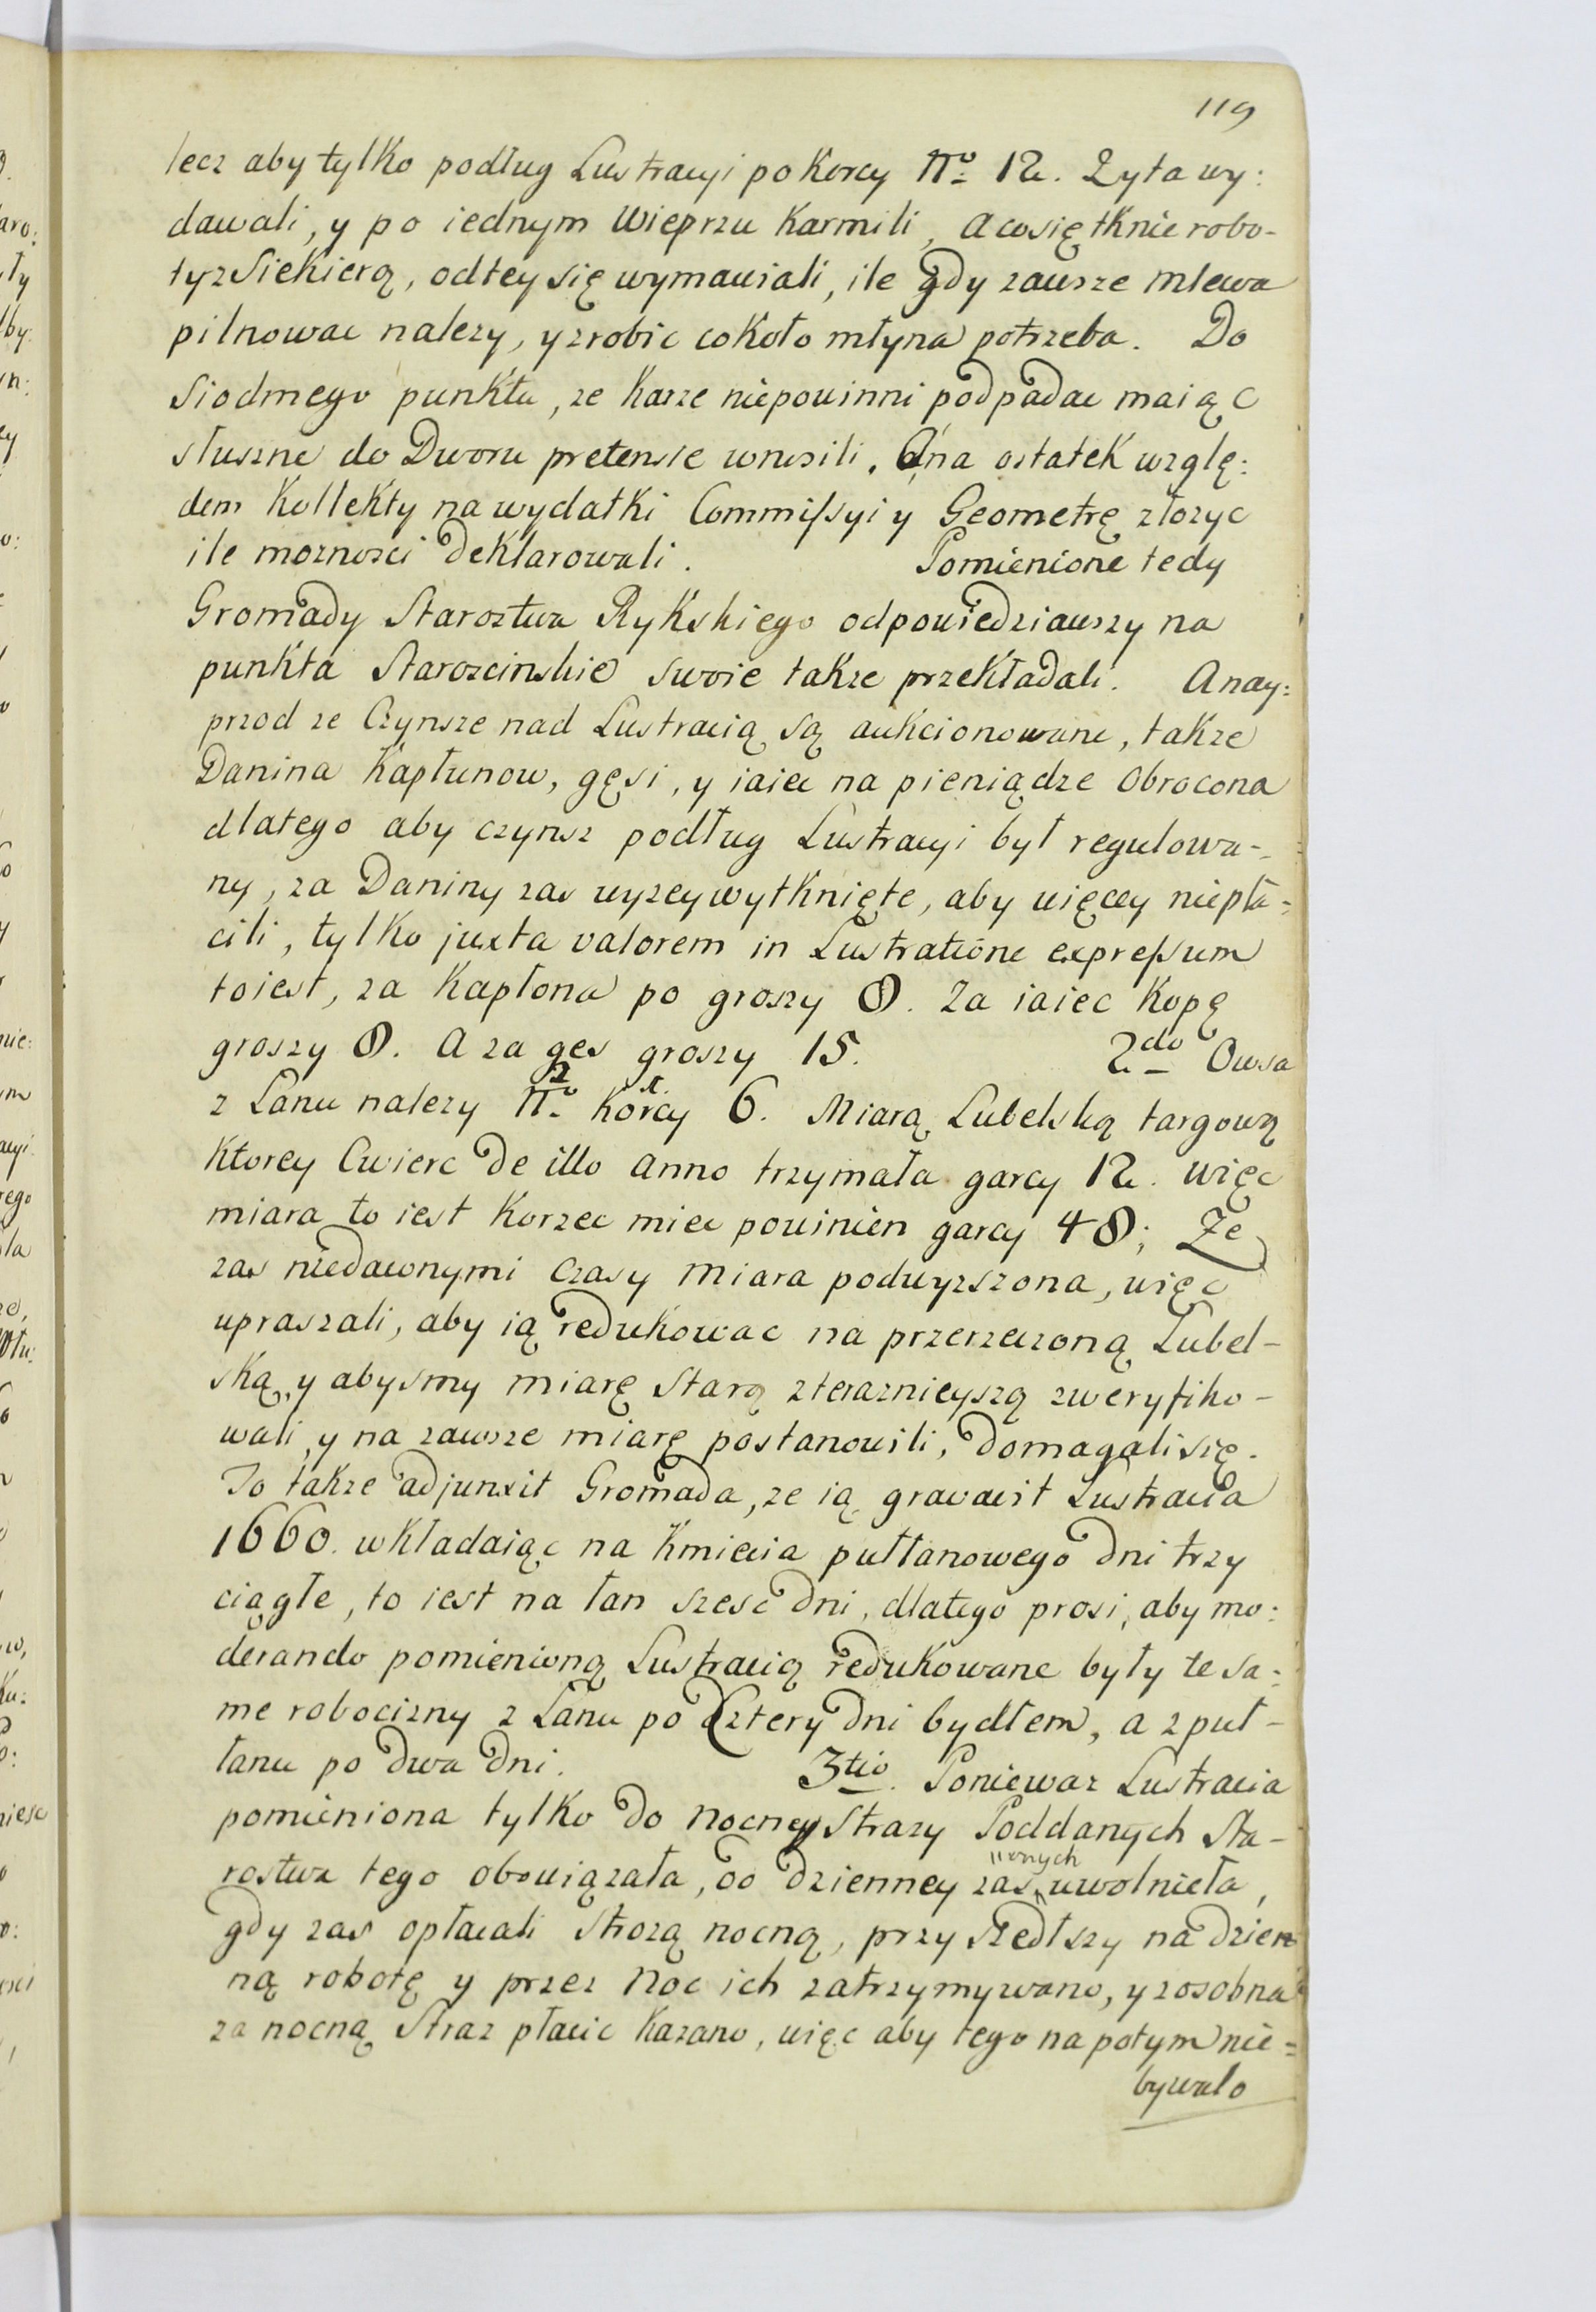 119
lecz aby tylko podług Lustracyi po Korcy No. 12. Zyta wy:
dawali, y po iednym Wieprzu Karmili, a co się tknie robo-
ty z Siekierą, od tey się wymawiali, ile gdy zawsze mlewa
pilnowac nalezy, y zrobic co koło młyna potrzeba. Do
Siodmego punktu, ze Karze niepowinni podpadac maiąc
słuszne do Dworu pretensie wnosili. A na ostatek wzglę:
dem Kollekty na wydatki Commissyi y Geometrę złozyc
ile moznosci deklarowali. Pomienione tedy
Gromady Starostwa Rykskiego odpowiedziawszy na
punkta Staroscinskie swoie takze przekładali. A nay:
przod ze Czynsze nad Lustracią są aukcionowane, takze
Danina Kapłunow, gęsi, y iaiec na pieniądze obrocona
dlatego aby czynsz podług Lustracyi był regulowa-
ny, za Daniny zas wyzey wytknięte, aby więcey niepła:
cili, tylko juxta valorem in Lustratione expressum
to iest, za Kapłona po groszy 8. Za iaiec Kopę
groszy 8. A za ges groszy 15. 2do Owsa
z Lanu nalezy No. Korcy 6. Miarą Lubelską targową
Ktorey Cwierc de illo anno trzymała garcy 12. więc
miara to iest Korzec miec powinien garcy 48; Ze
zas niedawnymi czasy miara podwyzszona, więc
upraszali, aby ią redukowac na przerzeczoną Lubel-
ską, y abysmy miarę Starą z teraznieyszą zweryfiko-
wali, y na zawsze miarę postanowili, domagali się.
To takze adjunxit Gromada, ze ią gravavit Lustracia
1660. wkładaiąc na Kmiecia pułłanowego dni trzy
ciągłe, to iest na łan szesc dni, dlatego prosi, aby mo:
derando pomienioną Lustracią redukowane były te sa:
me robocizny z Lanu po Cztery dni bydłem, a z puł-
łanu po dwa dni. 3tio. Poniewaz Lustracia
pomieniona tylko do nocney Strazy Poddanych Sta-
rostwa tego obowiązała, od dzienney zas uwolnieła,
gdy zas opłacali Strozą nocną, przyszedłszy na dzien
ną robotę y przez Noc ich zatrzymywano, y zosobna
za nocną Straz płacic Kazano, więc aby tego na potym nie=
bywało